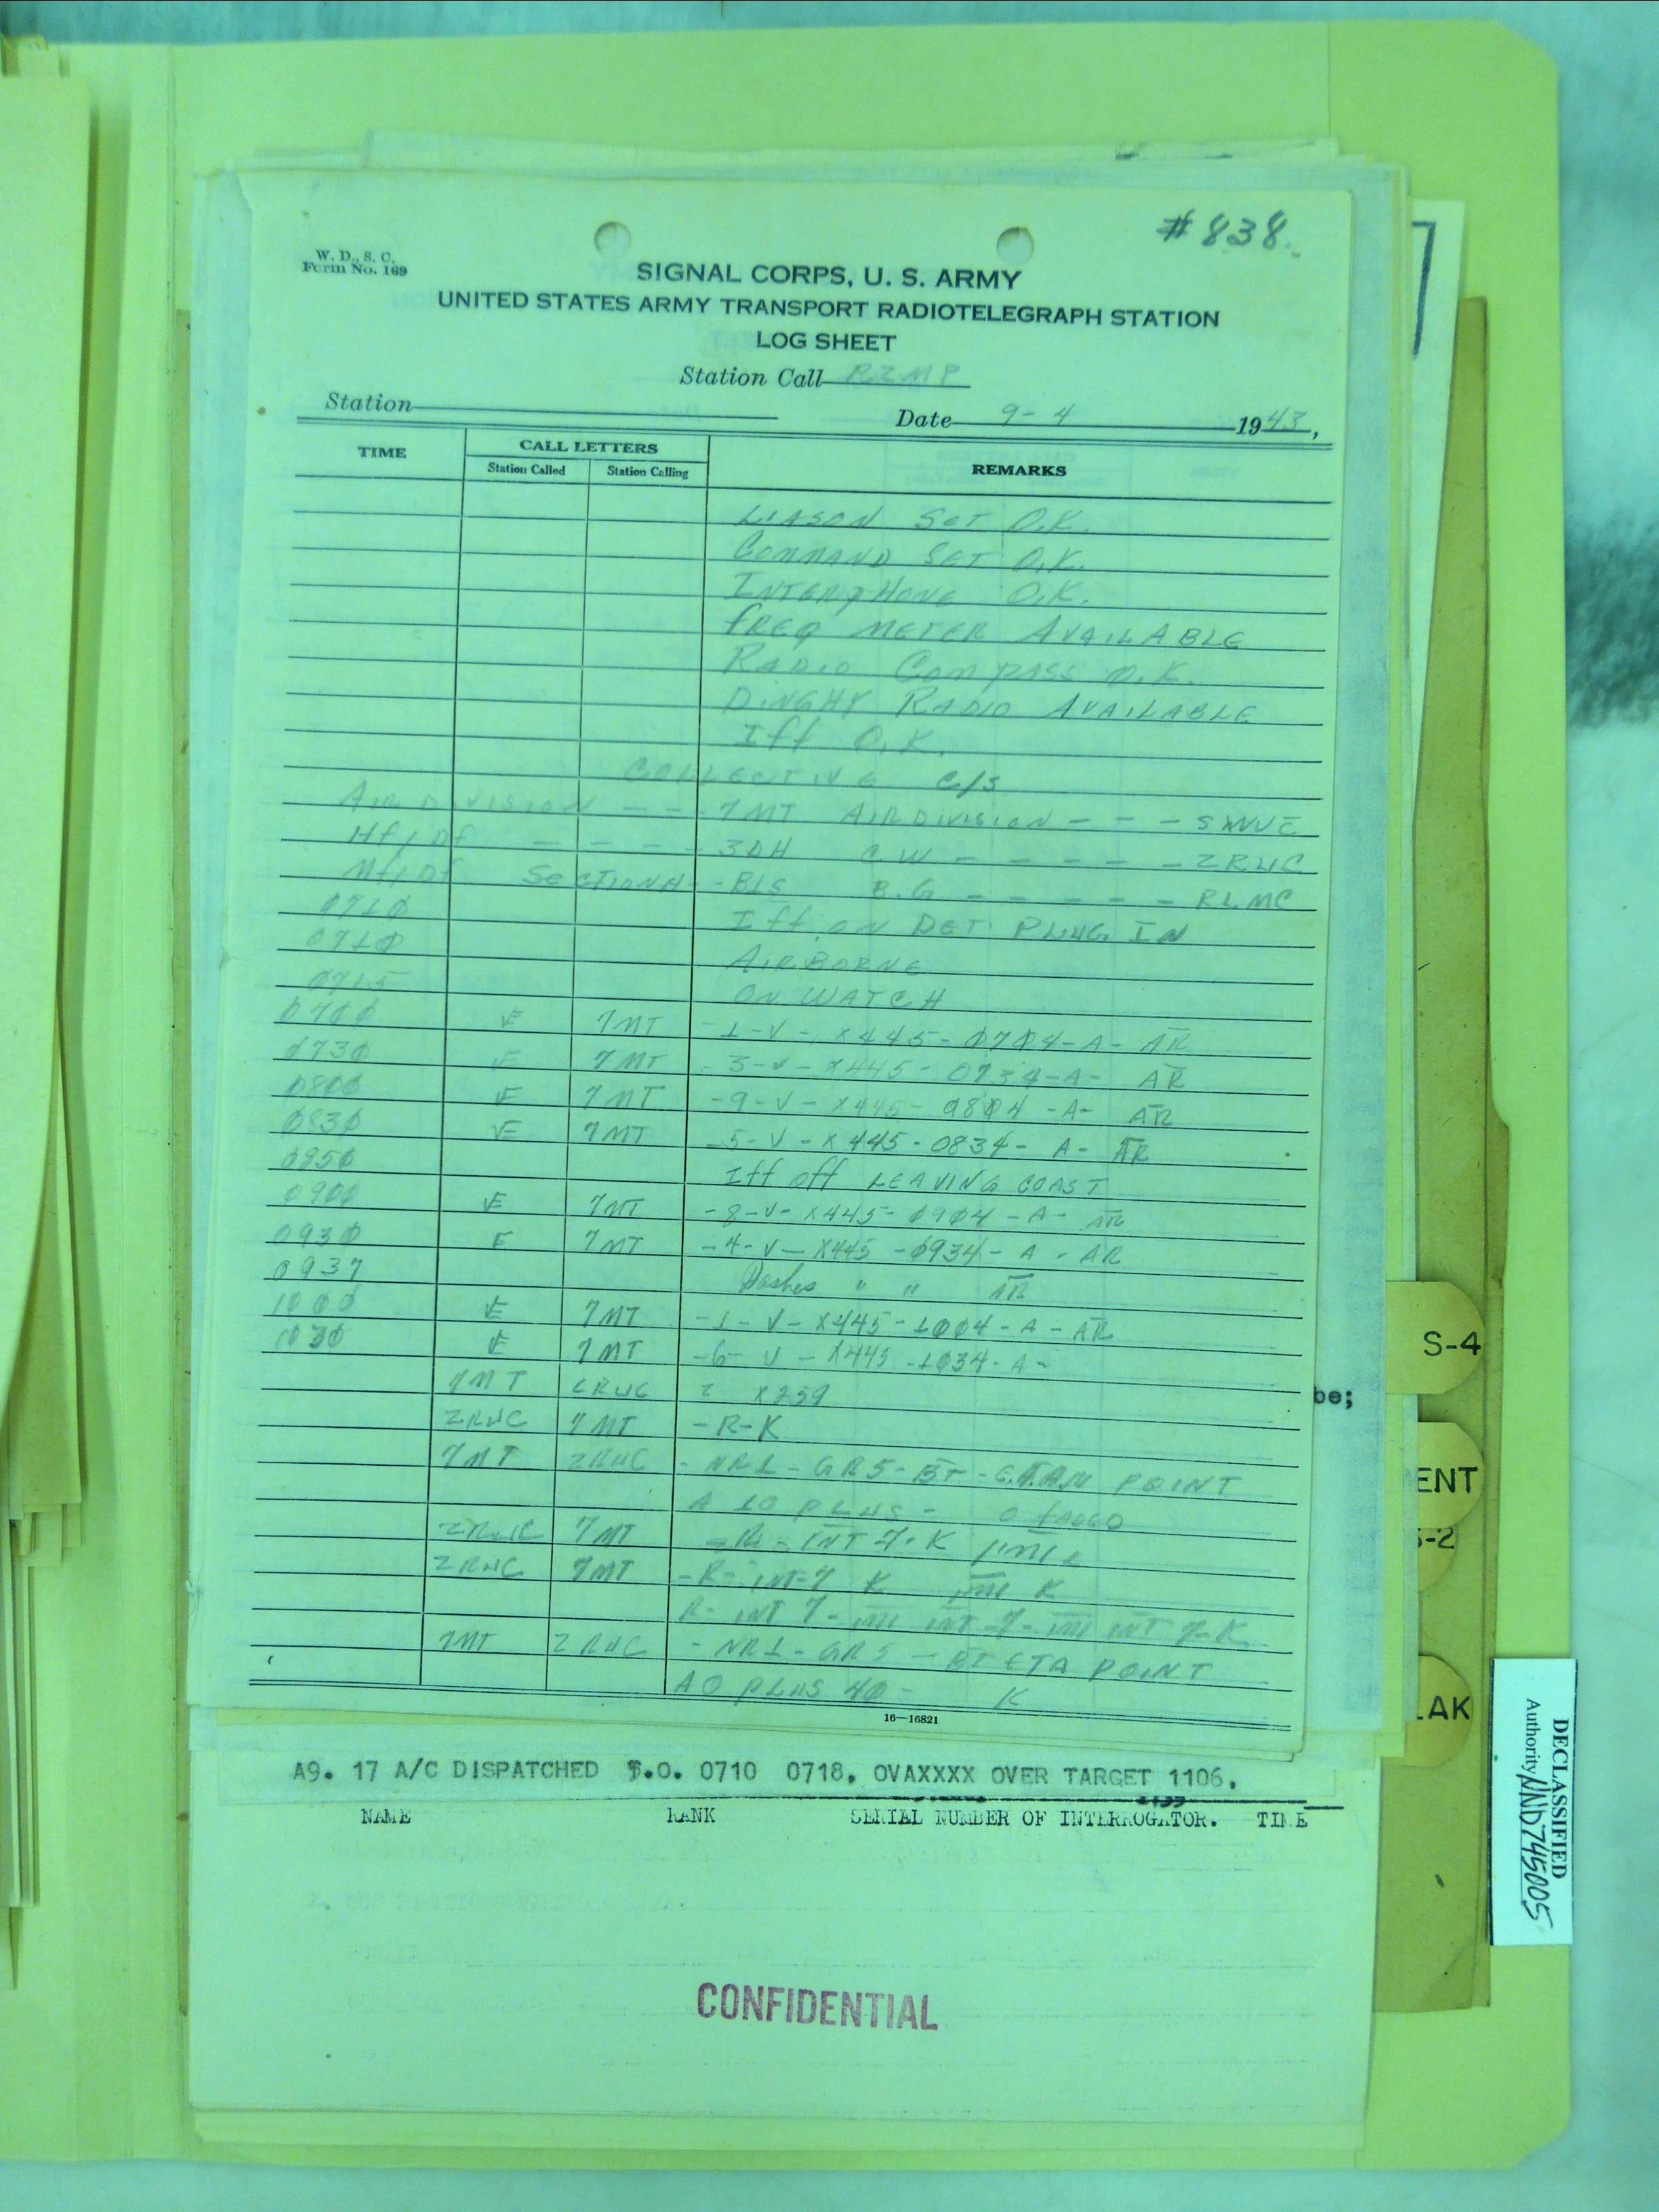 #838
W. D., S. C.
Form No. 169
SIGNAL CORPS, U. S. ARMY
UNITED STATES ARMY TRANSPORT RADIOTELEGRAPH STATION
LOG SHEET
Station Call RZMP
Station
Date 9-4 1943,
TIME CALL LETTERS REMARKS
Station Called Station Calling
LIASON SET O.K.
COMMAND SET O.K.
INTERPHONE O.K.
FREQ METER AVAILABLE
RADIO COMPASS O.K.
DINGHY RADIO AVAILABLE
Iff O.K.
COLLECTIVE C/S
AIR DIVISION --- 7MT AIR DIVISION ---
Hf/Df ----- 3DH CW ----- ZRUC
Mf/Df SECTION H-- B.G ----- RLMC
0710 Iff ON DET PLUG IN
0710 AIRBORNE
0715 ON WATCH
0700 7MT -1-V-X445-0704-A-AR
0730 7MT -3-V-X445-0734-A-AR
0800 7MT -9-V-X445-0804-A-AR
0830 7MT -5-V-X445-0834-A-AR
0850 Iff off LEAVING COAST
0900 7MT -8-V-X445-0904-A-AR
0930 7MT -4-V-X445-0934-A-AR
0937 Dashes " " AR
1000 7MT -1-V-X445-1004-A-AR
1030 7MT -6-V-X445-1034-A-
7MT ZRUC X259
ZRUC 7MT -R-K
7MT ZRUC -NR1-GR5-BT- POINT
A 10 PLUS-
ZRUC 7MT -R-INT 7-K
ZRUC 7MT -R-INT-7 K IMI K
R-INT 7-IMI INT-7-IMI INT 7-K
7MT ZRUC -NR1-GR5-BT ETA POINT
AO PLUS 40- K
16—16821
be;
S-4
ENT
S-2
LAK
A9. 17 A/C DISPATCHED T.O. 0710 0718. OVAXXXX OVER TARGET 1106.
NAME RANK SERIAL NUMBER OF INTERROGATOR. TIME
CONFIDENTIAL
DECLASSIFIED
Authority NND745005